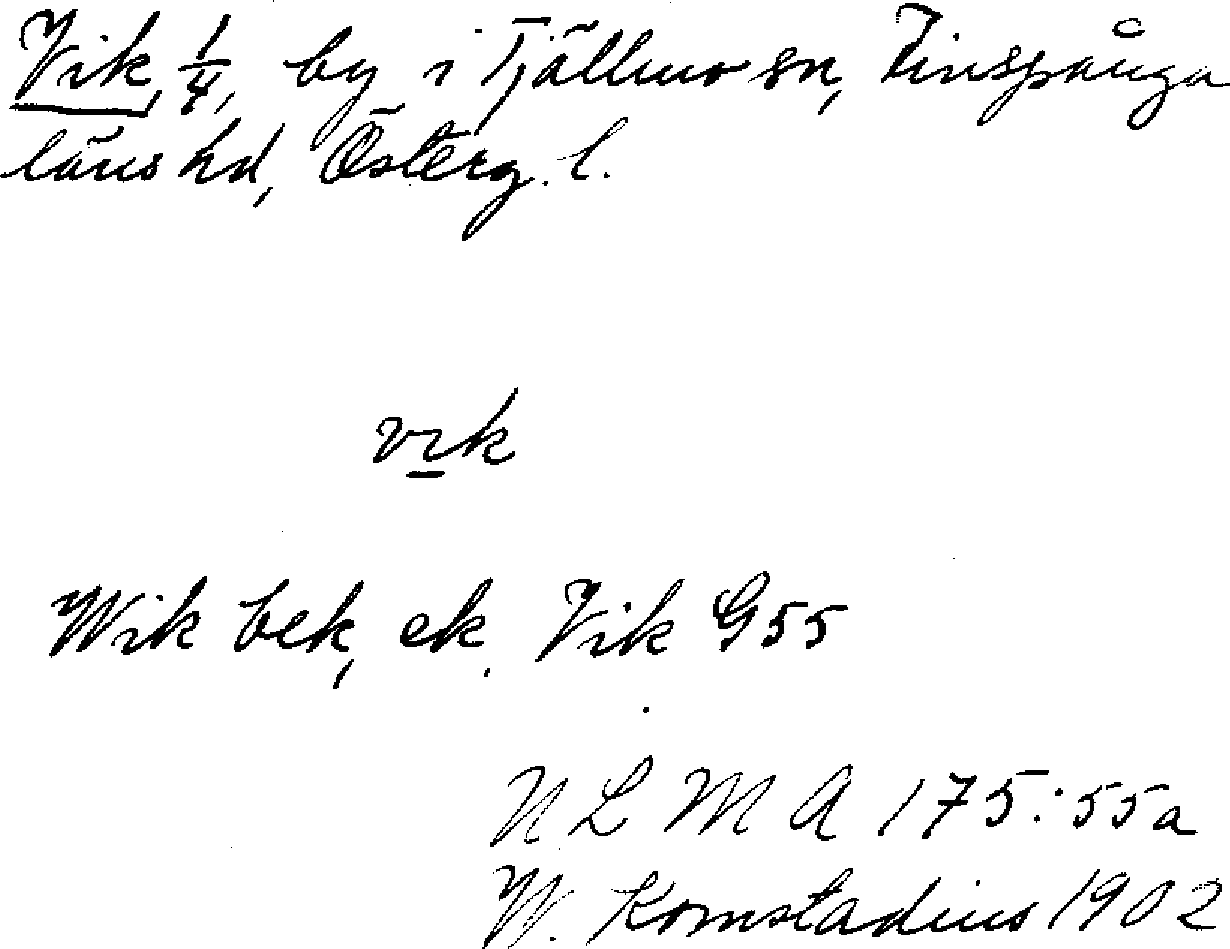 Vik, 1/4, by i Tjällmo sn, Finspånga
läns hd, Österg. l.
vik
Wik bek, ek. Vik G55
N L M A 175:55a
W. Komstadius 1902